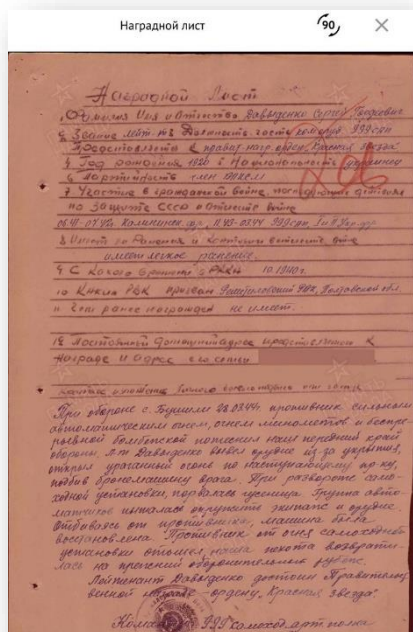 Наградной лист
90
Наградной Лист
1. Фамилия Имя и Отчество Давыденко Сергей
2. Звание лейт-нт 3. Должность части ком. оруд. 999 сап
Представляется к правит. нагр. орден "Красная звезда"
4. Год рождения 1920 5. Национальность украинец
6. Партийность член ВЛКСМ
7. Участие в гражданской войне, последующих действиях
по защите СССР и отечеств. войне
06.41-07.42 Калининск. фр., 11.43-07.44 999 сап,
8. Имеет ли ранения и контузии в отечеств. войне
имеет легкое ранение.
9. С какого времени в РККА 10.1940г.
10. Каким РВК призван РВК, Полтавской обл.
11. Чем ранее награжден не имеет.
12. Постоянный домашний адрес представляемого к
награде и адрес его семьи
Краткое изложение боевого
При обороне с. 23.07.44г. противник сильным
автоматическим огнем, огнем минометов и беспре-
рывной бомбежкой потеснил наш передний край
обороны. Л-т Давыденко вывел орудие из за укрытия,
открыл ураганный огонь по наступающему пр-ку,
подбив бронемашину врага. При развороте само-
ходной установки, порвалась гусеница. Группа авто-
матчиков пыталась окружить экипаж и орудие.
Отбиваясь от противника, машина была
восстановлена. Противник от огня самоходной
установки отошел, наша пехота возврати-
лась на прежний оборонительный рубеж.
Лейтенант Давыденко достоин Правительст-
венной награде - ордену "Красная звезда".
999 самоход. арт. полка